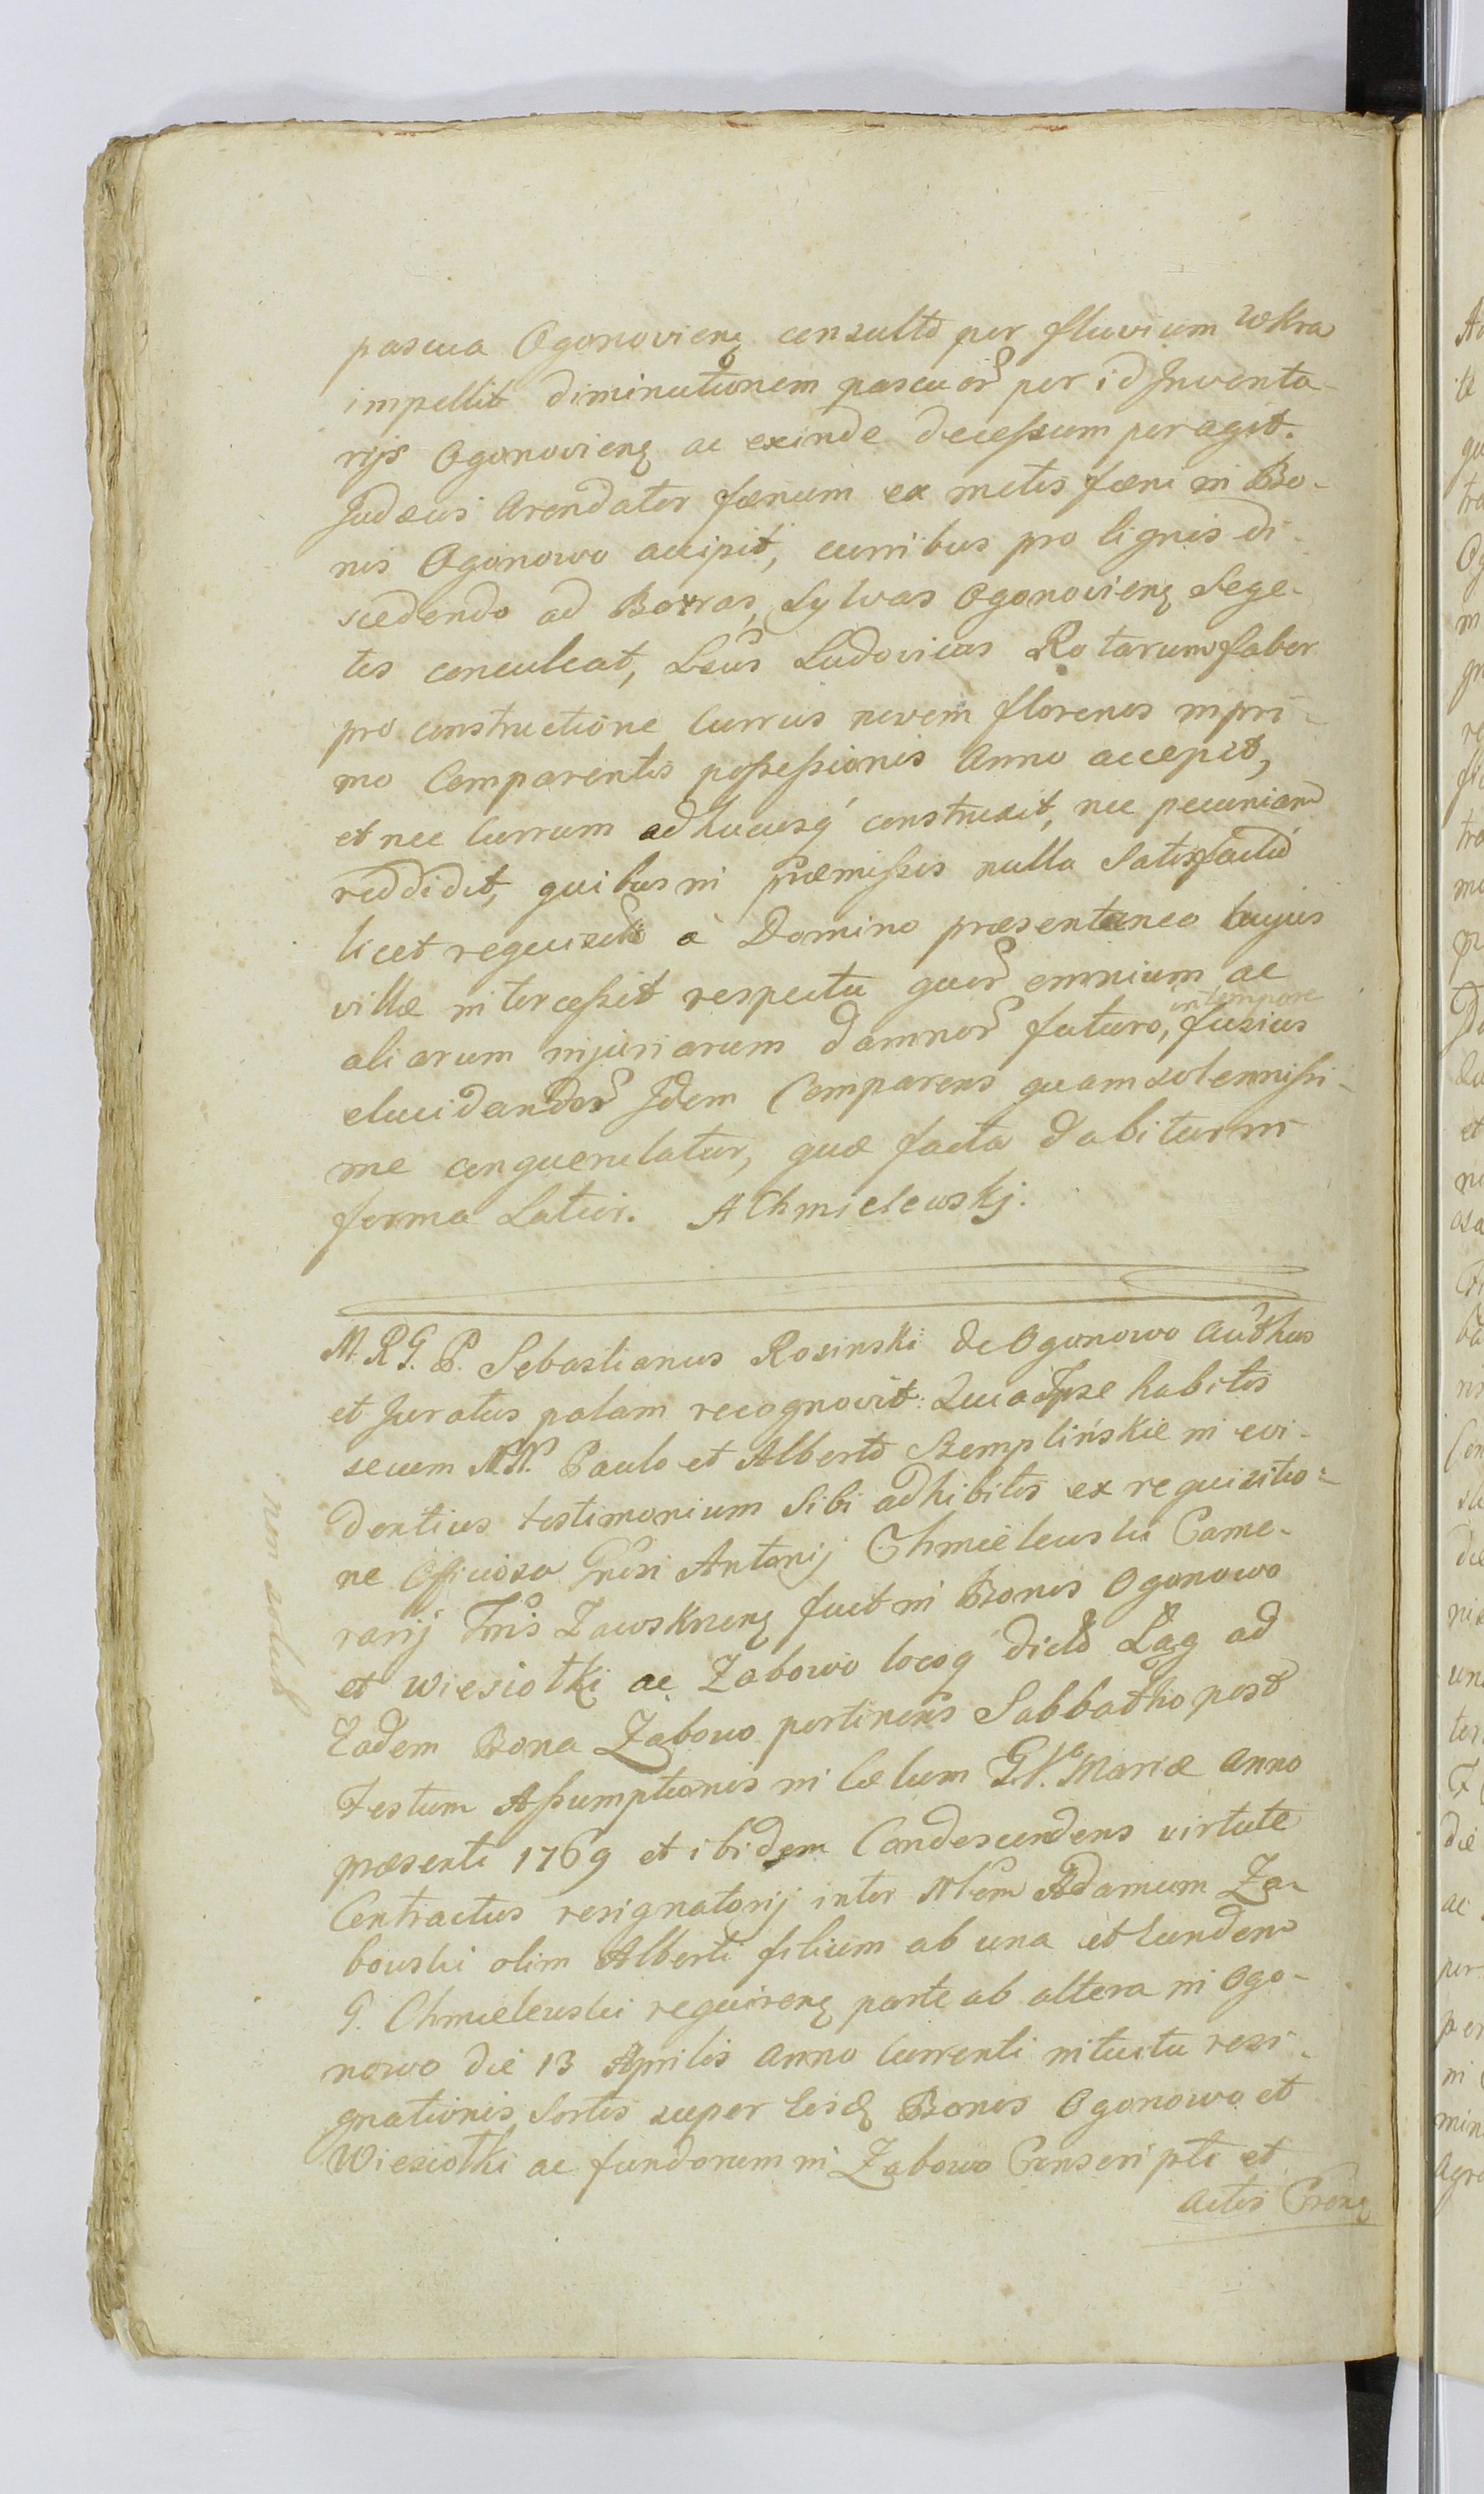 pascua Ogonovienꝫ consulto per fluvium Wkra
impellit diminutionem pascuor̃ per id Inventa-
rijs Ogonovienꝫ ac exinde decessum peragit.
Judæus Arendator fœnum ex metis fœni in Bo-
nis Ogonowo accipit, curribus pro lignis di-
scedendo ad Borras, Sylvas Ogonovienꝫ Sege-
tes conculcat, Ludovicus Rotarum faber
pro constructione Currus novem florenos in pri-
mo Comparentis possessionis Anno accepit,
et nec Currum adhucusq́ construxit, nec pecuniam
reddidit, quibus in præmissis nulla Satisfactio
licet requisita à Domino præsentaneo hujus
villæ intercessit respectu quor̃ omnium ac
aliarum injuriarum damnor̃ futuro, in tempore fusius
elucidandor̃ Idem Comparens quam solennissi-
me conquerulatur, quæ facta dabitur in
forma Latior. AChmielewskj.
M. R G. P. Sebastianus Rosinski de Ogonowo Authus
et Juratus palam recognovit: Quia Ipse habitis
secum NN. Paulo et Alberto Szemplińskie in evi-
dentius testimonium Sibi adhibitis ex requisitio-
ne Officiosa Gnosi Antonij Chmielewski Came-
rarij Tris Zawskrnenꝫ fuit in Bonis Ogonowo
et Wiesiołki ac Zabowo locoq́ dicto Łąg ad
Eadem Bona Zabowo pertinens Sabbatho post
Festum Assumptionis in Cœlum B.V. Mariæ Anno
præsenti 1769 et ibidem Condescendens virtute
Contractus resignatorij inter Nlem Adamum Za-
bowski olim Alberti filium ab una et Eundem
G. Chmielewski requirenꝫ parte ab altera in Ogo-
nowo die 13 Aprilis Anno Currenti intuitu resi-
gnationis Sortis super Eisdꝫ Bonis Ogonowo et
Wiesiołki ac fundorum in Zabowo Conscripti et
Actis
non solut